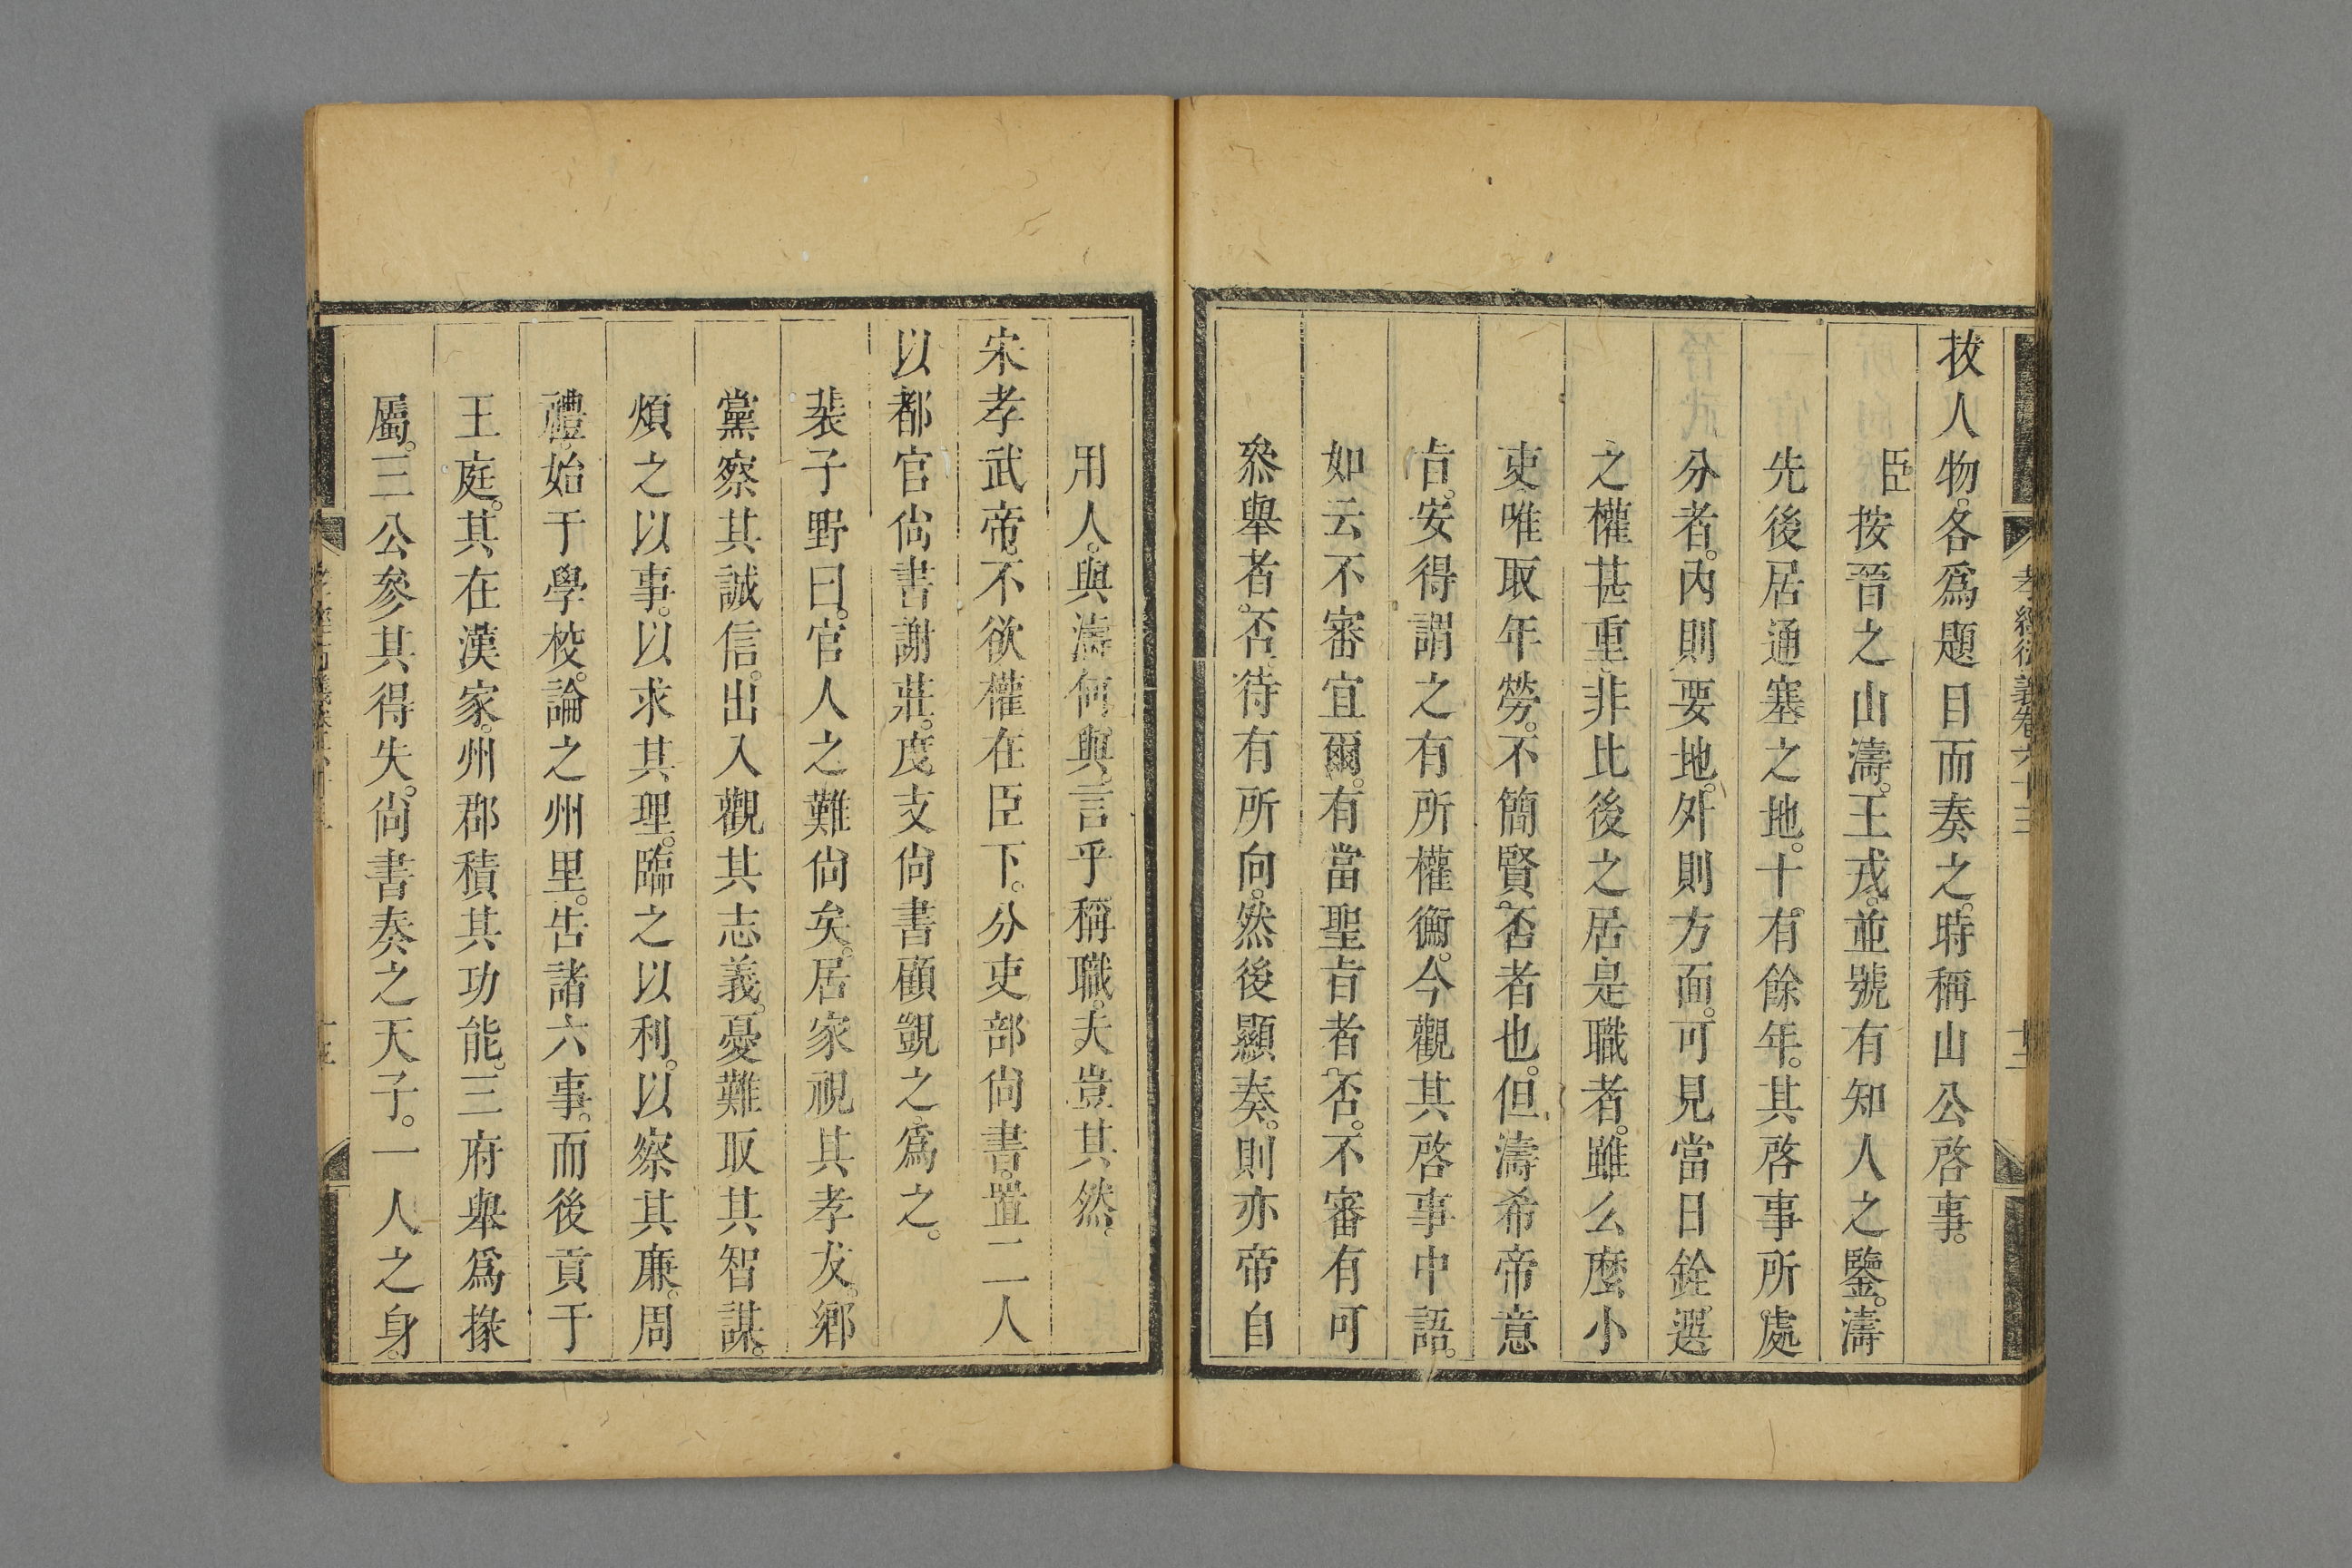 孝經衍義卷六十三
拔人物。各爲題目而奏之。時稱山公啓事。
臣按晉之山濤。王戎。並號有知人之鑒。濤
先後居通塞之地。十有餘年。其啓事所處
分者。內則要地。外則方面。可見當日銓選
之權甚重。非比後之居是職者。雖么麼小
吏。唯取年勞。不簡賢否者也。但濤希帝意
㫖。安得謂之有所權衡。今觀其啓事中語。
如云不審宜爾。有當聖㫖者否。不審有可
叅舉者。否待有所向。然後顯奏。則亦帝自
用人。與濤何與。言乎稱職。夫豈其然。
宋孝武帝。不欲權在臣下。分吏部尙書。置二人
以都官尙書謝莊。度支尙書顧覬之爲之。
裴子野曰。官人之難尙矣。居家視其孝友。鄉
黨察其誠信。出入觀其志義。憂難取其智謀。
煩之以事。以求其理。臨之以利。以察其廉。周
禮。始于學校。論之州里。告諸六事。而後貢于
王庭。其在漢家。州郡積其功能。三府舉爲掾
屬。三公參其得失。尙書奏之天子。一人之身。